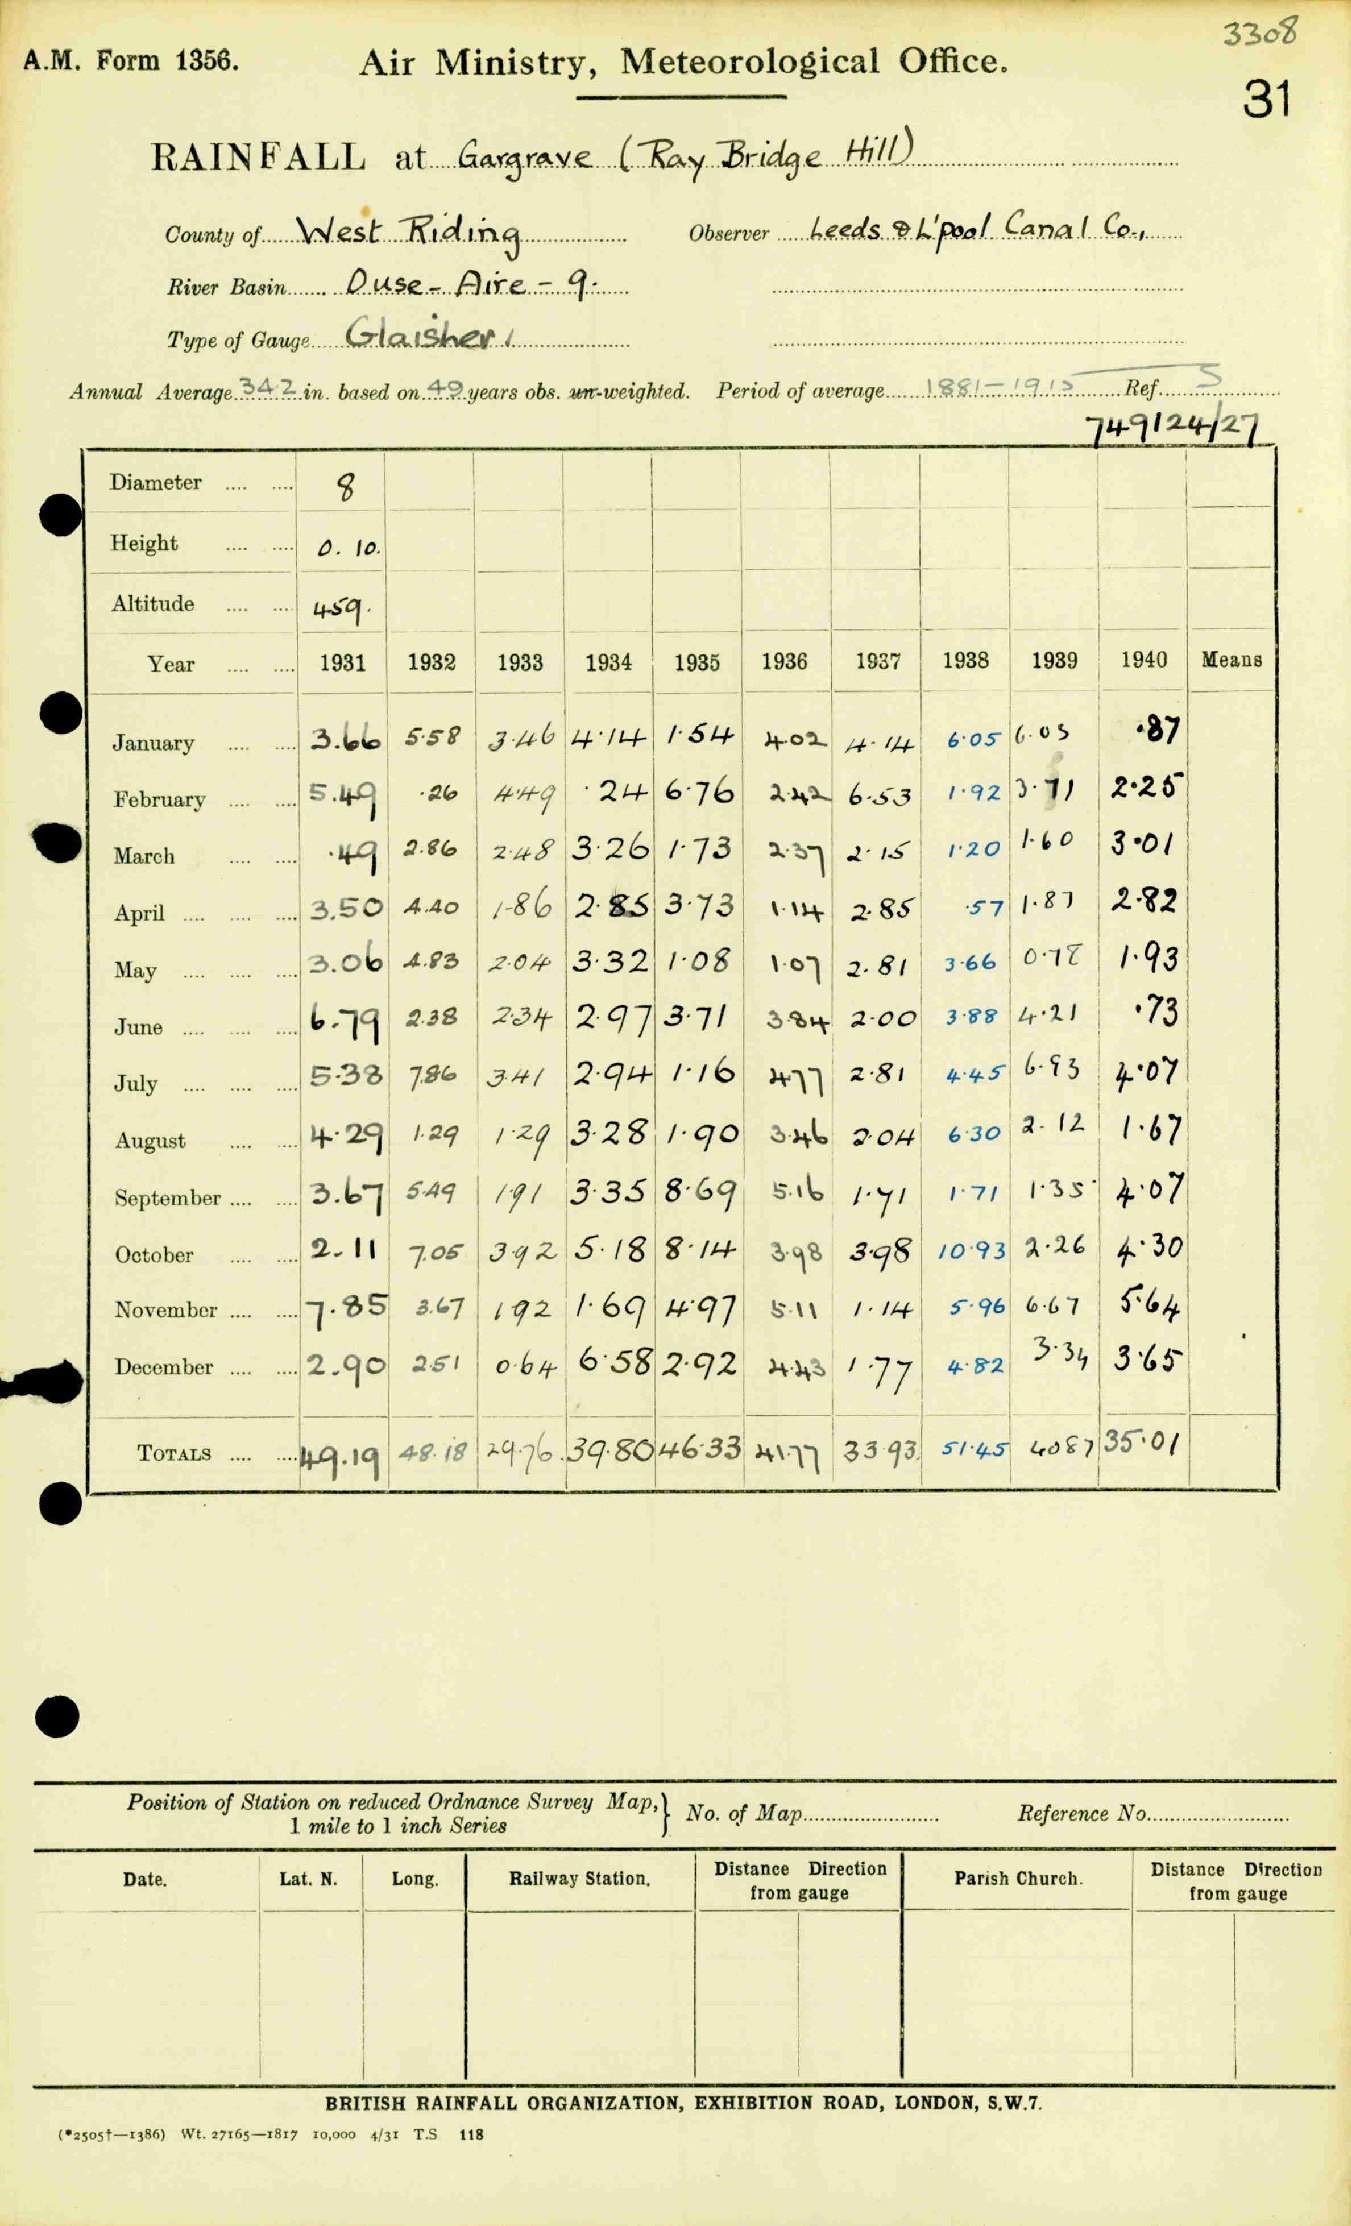 3308
A.M. Form 1356. Air Ministry, Meteorological Office.
31
RAINFALL at Gargrave (Ray Bridge Hill)
County of West Riding Observer Leeds & L'pool Canal Co.,
River Basin Ouse - Aire - 9.
Type of Gauge Glaisher
Annual Average 34.2 in. based on 49 years obs. un-weighted. Period of average 1881-1915 Ref. 5
749124/27
Diameter .... .... 8
Height .... .... 0. 10.
Altitude .... .... 459.
Year .... .... 1931 1932 1933 1934 1935 1936 1937 1938 1939 1940 Means
January .... .... 3.66 5.58 3.46 4.14 1.54 4.02 4.14 6.05 6.03 .87
February .... .... 5.49 .26 4.49 .24 6.76 2.42 6.53 1.92 3.71 2.25
March .... .... .49 2.86 2.48 3.26 1.73 2.37 2.15 1.20 1.60 3.01
April .... .... .... 3.50 4.40 1.86 2.85 3.73 1.14 2.85 .57 1.87 2.82
May .... .... .... 3.06 4.83 2.04 3.32 1.08 1.07 2.81 3.66 0.78 1.93
June .... .... .... 6.79 2.38 2.34 2.97 3.71 3.84 2.00 3.88 4.21 .73
July .... .... .... 5.38 7.86 3.41 2.94 1.16 4.77 2.81 4.45 6.93 4.07
August .... .... 4.29 1.29 1.29 3.28 1.90 3.46 2.04 6.30 2.12 1.67
September .... .... 3.67 5.49 1.91 3.35 8.69 5.16 1.71 1.71 1.35 4.07
October .... .... 2.11 7.05 3.92 5.18 8.14 3.98 3.98 10.93 2.26 4.30
November .... .... 7.85 3.67 1.92 1.69 4.97 5.11 1.14 5.96 6.67 5.64
December .... .... 2.90 2.51 0.64 6.58 2.92 4.43 1.77 4.82 3.34 3.65
TOTALS .... .... 49.19 48.18 29.76 39.80 46.33 41.77 33.93 51.45 40.87 35.01
Position of Station on reduced Ordnance Survey Map, 1 mile to 1 inch Series } No. of Map Reference No.
Date. Lat. N. Long. Railway Station. Distance Direction from gauge Parish Church. Distance Direction from gauge
BRITISH RAINFALL ORGANIZATION, EXHIBITION ROAD, LONDON, S.W.7.
(*2505†—1386) Wt. 27165—1817 10,000 4/31 T.S 118